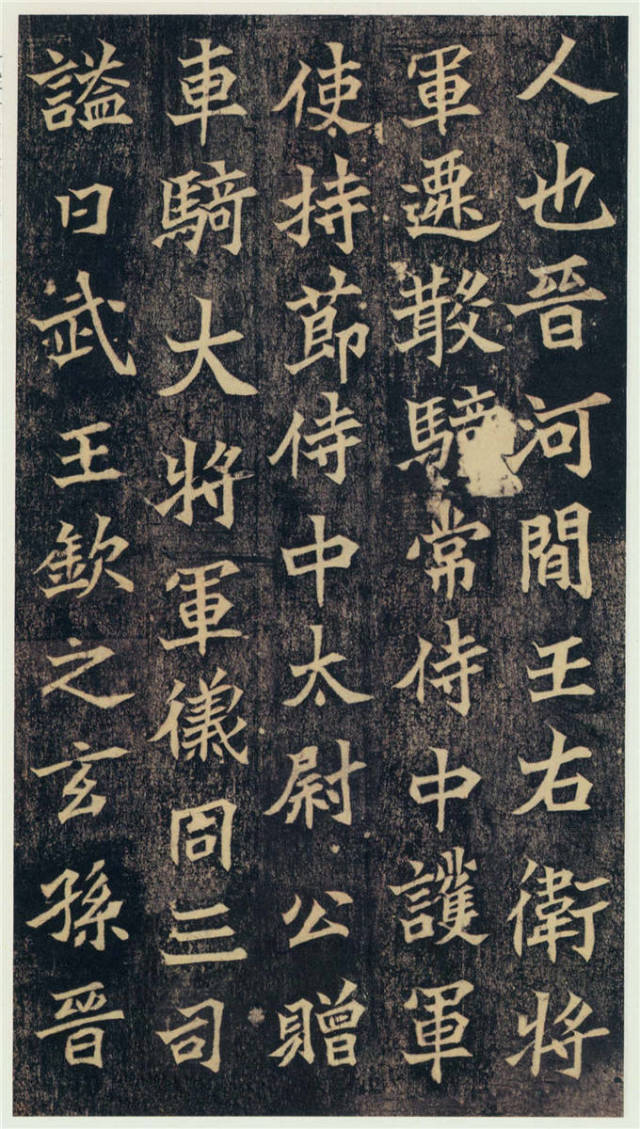 人也晉河間王右衛將
軍遷散騎常侍中護軍
使持節侍中太尉公贈
車騎大將軍儀同三司
謚曰武王欽之玄孫晉